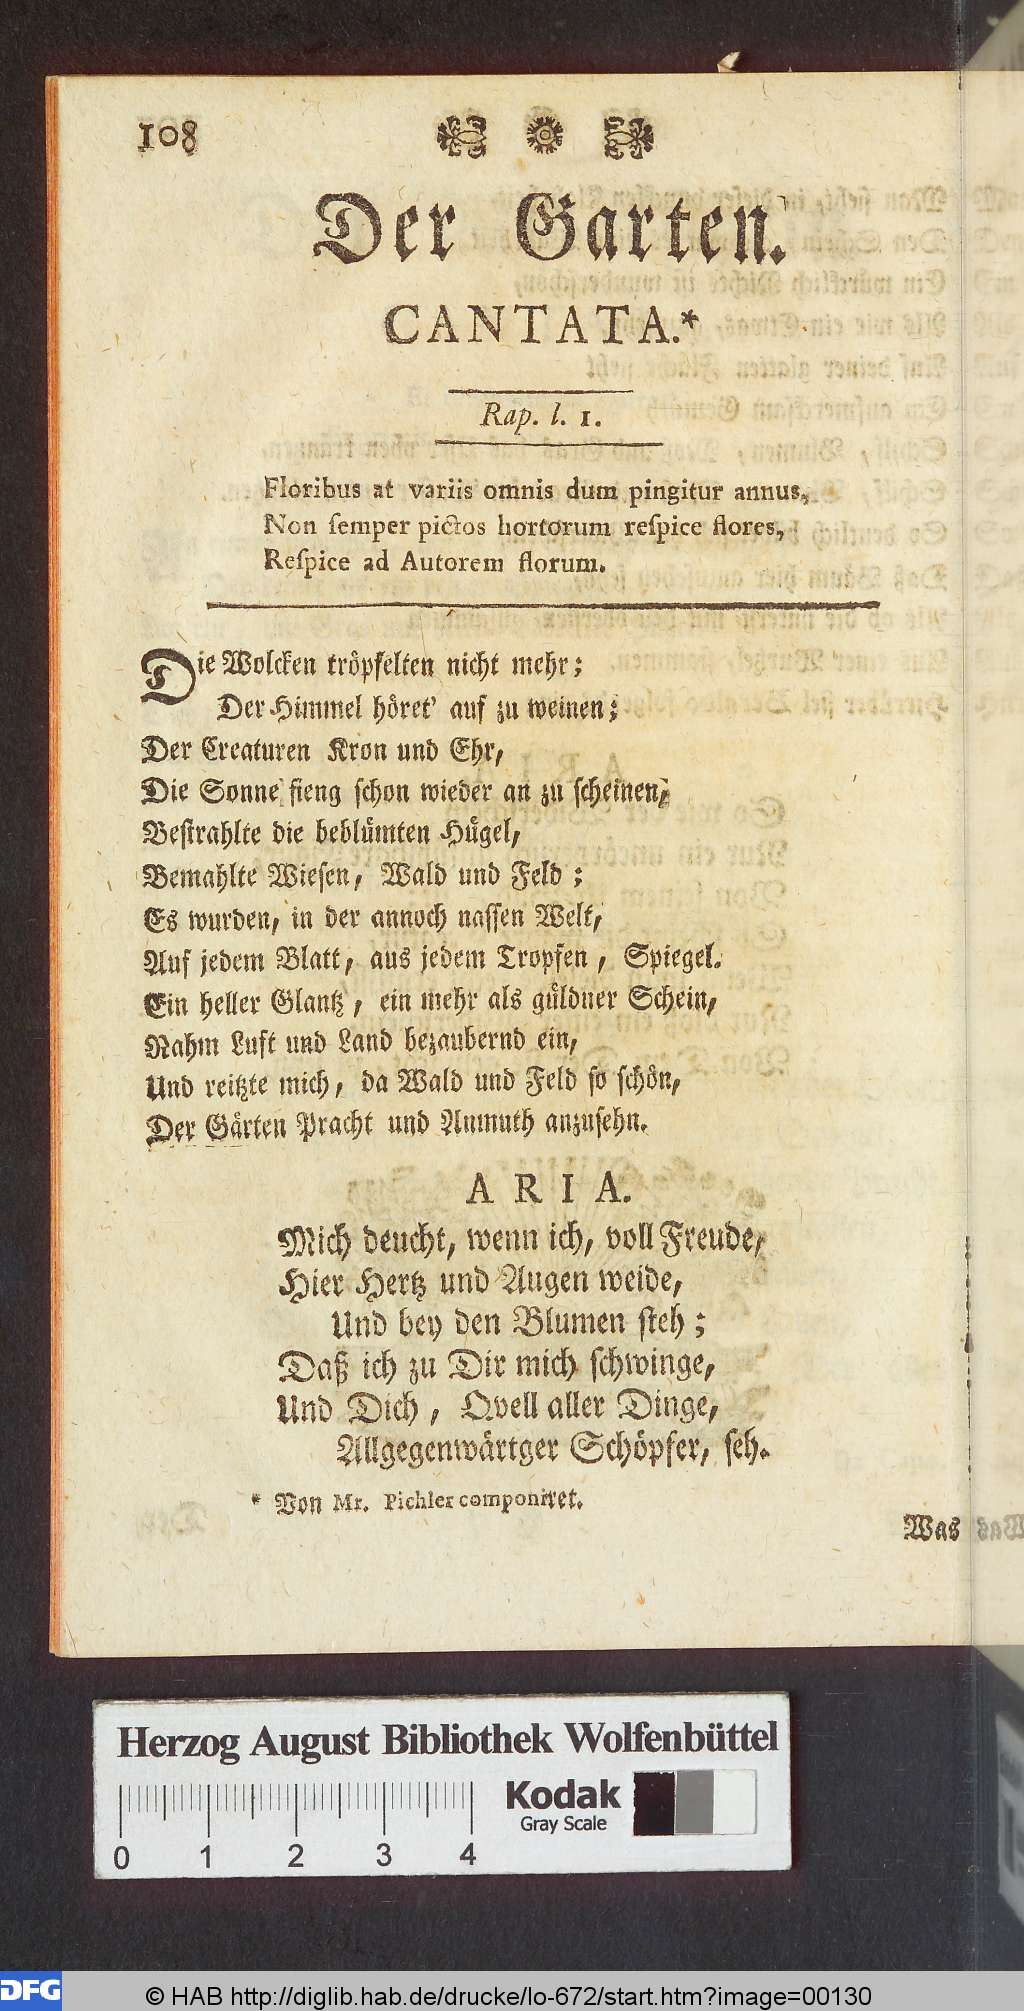 108
Der Garten.
CANTATA.*
Rap. l. 1.
Floribus at variis omnis dum pingitur annus,
Non ſemper pictos hortorum reſpice flores,
Reſpice ad Autorem florum.
Die Wolcken tröpfelten nicht mehr;
Der Himmel höret' auf zu weinen;
Der Creaturen Kron und Ehr,
Die Sonne fieng ſchon wieder an zu ſcheinen,
Beſtrahlte die beblümten Hügel,
Bemahlte Wieſen, Wald und Feld;
Es wurden, in der annoch naſſen Welt,
Auf jedem Blatt, aus jedem Tropfen, Spiegel.
Ein heller Glantz, ein mehr als güldner Schein,
Nahm Luft und Land bezaubernd ein,
Und reitzte mich, da Wald und Feld ſo ſchön,
Der Gärten Pracht und Anmuth anzuſehn.
ARIA.
Mich deucht, wenn ich, voll Freude,
Hier Hertz und Augen weide,
Und bey den Blumen ſteh;
Daß ich zu Dir mich ſchwinge,
Und Dich, Qvell aller Dinge,
Allgegenwärtger Schöpfer, ſeh.
* Von Mr. Pichler componiret.
Was
Herzog August Bibliothek Wolfenbüttel
Kodak
Gray Scale
0 1 2 3 4
DFG
© HAB http://diglib.hab.de/drucke/lo-672/start.htm?image=00130